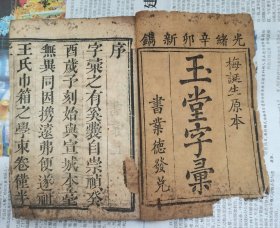 光緒辛卯新鐫
梅誕生原本
玉堂字彙
書業德發兌
序
字彙之有奚嚢自崇禎癸
酉歲予刻始與宣城本竝
無異同因携遠弗便遂祖
王氏巾箱之學束卷僅半